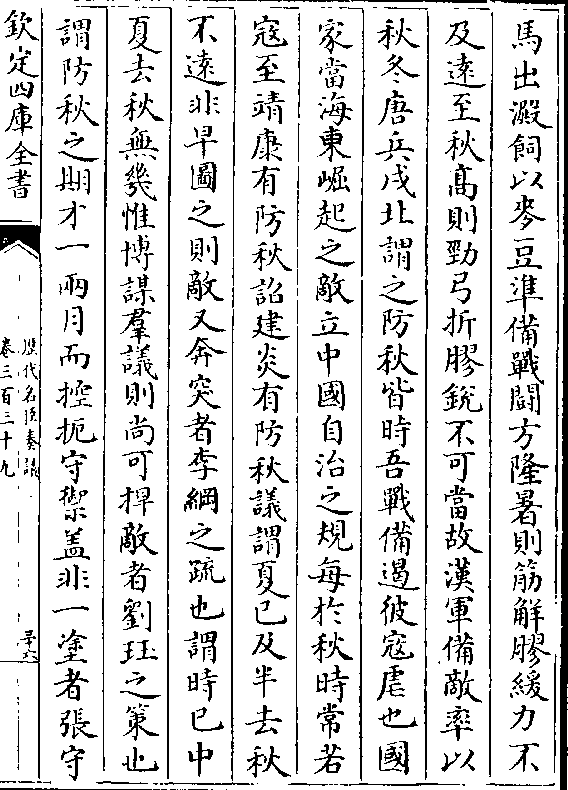 馬出澱飼以麥豆準備戰鬭方隆暑則筋解膠緩力不
及遠至秋髙則勁弓折膠銳不可當故漢軍備敵率以
秋冬唐兵戍北謂之防秋皆時吾戰備遏彼寇虐也國
家當海東崛起之敵立中國自治之規每於秋時常若
寇至靖康有防秋詔建炎有防秋議謂夏已及半去秋
不遠非早圖之則敵又奔突者李綱之疏也謂時已中
夏去秋無幾惟博謀羣議則尚可捍敵者劉珏之策也
謂防秋之期才一兩月而控扼守禦盖非一塗者張守
欽定四庫全書
歴代名臣奏議
卷三百三十九
三十六